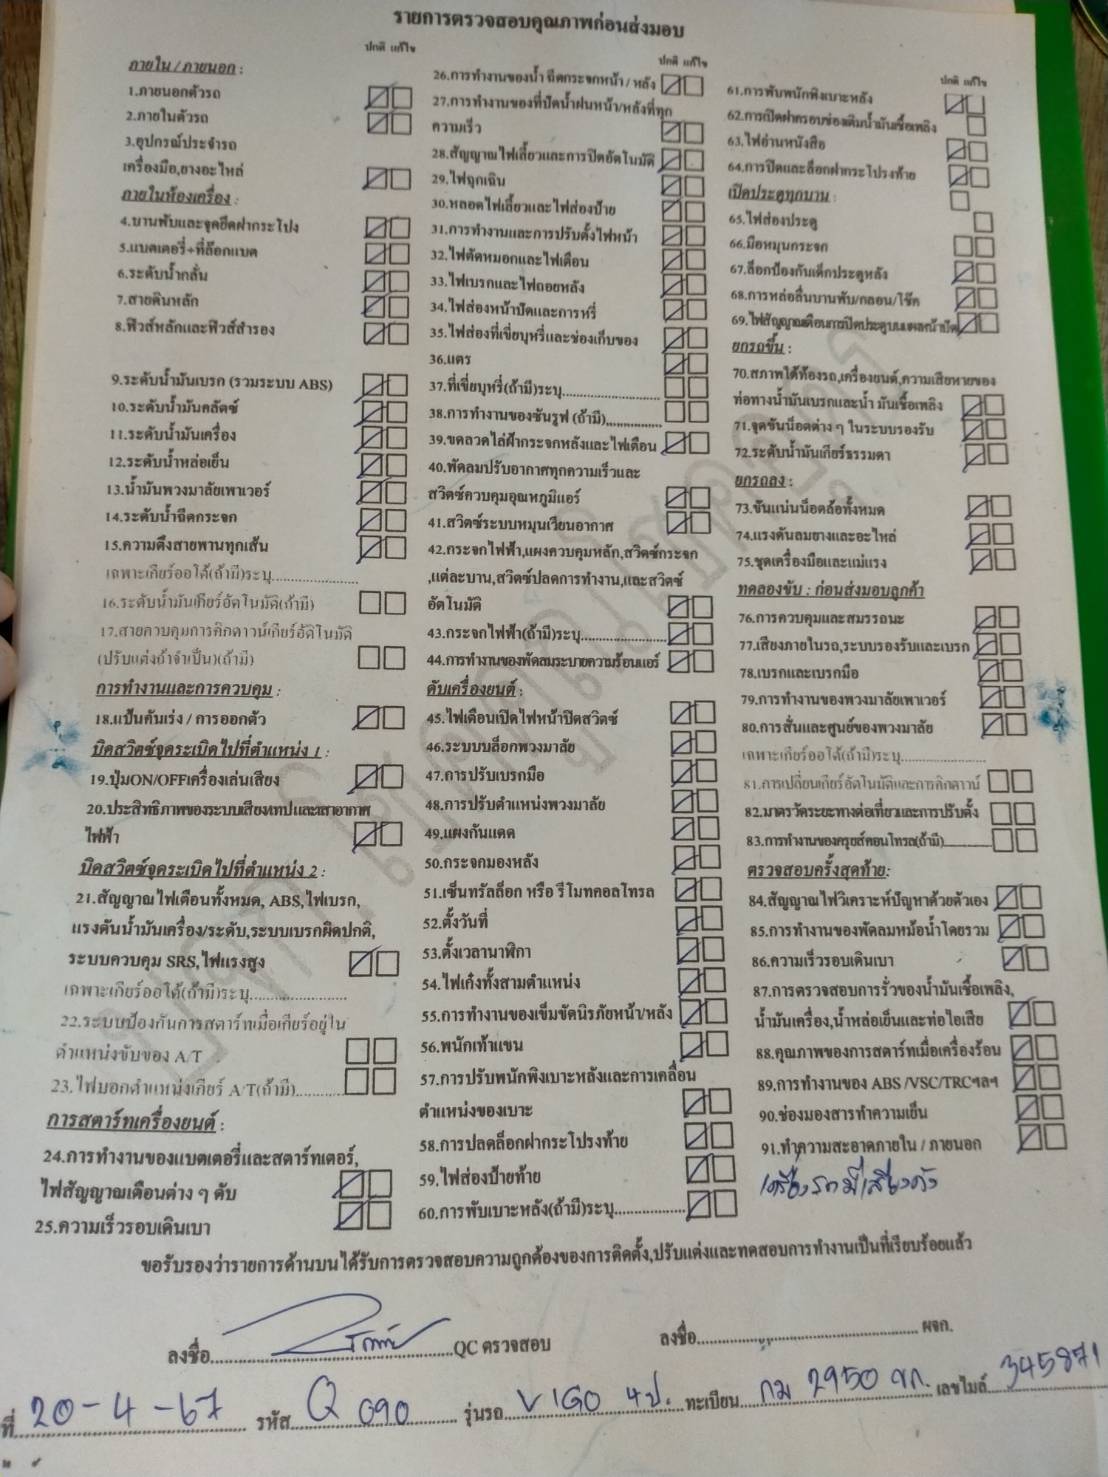 รายการตรวจสอบคุณภาพก่อนส่งมอบ
ปกติ แก้ไข
ภายใน / ภายนอก :
1.ภายนอกตัวรถ
2.ภายในตัวรถ
3.อุปกรณ์ประจำรถ
เครื่องมือ,ยางอะไหล่
ภายในห้องเครื่อง :
4.บานพับและจุดยึดฝากระโปง
5.แบตเตอรี่+ที่ล๊อกแบต
6.ระดับน้ำกลั่น
7.สายดินหลัก
8.ฟิวส์หลักและฟิวส์สำรอง
9.ระดับน้ำมันเบรก (รวมระบบ ABS)
10.ระดับน้ำมันคลัตซ์
11.ระดับน้ำมันเครื่อง
12.ระดับน้ำหล่อเย็น
13.น้ำมันพวงมาลัยเพาเวอร์
14.ระดับน้ำฉีดกระจก
15.ความตึงสายพานทุกเส้น
เฉพาะเกียร์ออโต้(ถ้ามี)ระบุ....................
16.ระดับน้ำมันเกียร์อัตโนมัติ(ถ้ามี)
17.สายควบคุมการคิกดาวน์เกียร์อัตโนมัติ
(ปรับแต่งถ้าจำเป็น)(ถ้ามี)
การทำงานและการควบคุม :
18.แป้นคันเร่ง / การออกตัว
บิดสวิตซ์จุดระเบิดไปที่ตำแหน่ง 1 :
19.ปุ่มON/OFFเครื่องเล่นเสียง
20.ประสิทธิภาพของระบบเสียงเทปและเสาอากาศ
ไฟฟ้า
บิดสวิตซ์จุดระเบิดไปที่ตำแหน่ง 2 :
21.สัญญาณไฟเตือนทั้งหมด, ABS,ไฟเบรก,
แรงดันน้ำมันเครื่อง/ระดับ,ระบบเบรกผิดปกติ,
ระบบควบคุม SRS,ไฟแรงสูง
เฉพาะเกียร์ออโต้(ถ้ามี)ระบุ....................
22.ระบบป้องกันการสตาร์ทเมื่อเกียร์อยู่ใน
ตำแหน่งขับของ A/T
23.ไฟบอกตำแหน่งเกียร์ A/T(ถ้ามี)............
การสตาร์ทเครื่องยนต์ :
24.การทำงานของแบตเตอรี่และสตาร์ทเตอร์,
ไฟสัญญาณเตือนต่าง ๆ ดับ
25.ความเร็วรอบเดินเบา
ปกติ แก้ไข
26.การทำงานของน้ำ ฉีดกระจกหน้า / หลัง
27.การทำงานของที่ปัดน้ำฝนหน้า/หลังที่ทุก
ความเร็ว
28.สัญญาณไฟเลี้ยวและการปิดอัตโนมัติ
29.ไฟฉุกเฉิน
30.หลอดไฟเลี้ยวและไฟส่องป้าย
31.การทำงานและการปรับตั้งไฟหน้า
32.ไฟตัดหมอกและไฟเตือน
33.ไฟเบรกและไฟถอยหลัง
34.ไฟส่องหน้าปัดและการหรี่
35.ไฟส่องที่เขี่ยบุหรี่และช่องเก็บของ
36.แตร
37.ที่เขี่ยบุหรี่(ถ้ามี)ระบุ......................
38.การทำงานของซันรูฟ (ถ้ามี)...............
39.ขดลวดไล่ฝ้ากระจกหลังและไฟเตือน
40.พัดลมปรับอากาศทุกความเร็วและ
สวิตซ์ควบคุมอุณหภูมิแอร์
41.สวิตซ์ระบบหมุนเวียนอากาศ
42.กระจกไฟฟ้า,แผงควบคุมหลัก,สวิตซ์กระจก
,แต่ละบาน,สวิตซ์ปลดการทำงาน,และสวิตซ์
อัตโนมัติ
43.กระจกไฟฟ้า(ถ้ามี)ระบุ....................
44.การทำงานของพัดลมระบายความร้อนแอร์
ดับเครื่องยนต์ :
45.ไฟเตือนเปิดไฟหน้าปิดสวิตซ์
46.ระบบบล็อกพวงมาลัย
47.การปรับเบรกมือ
48.การปรับตำแหน่งพวงมาลัย
49.แผงกันแดด
50.กระจกมองหลัง
51.เซ็นทรัลล็อก หรือ รีโมทคอลโทรล
52.ตั้งวันที่
53.ตั้งเวลานาฬิกา
54.ไฟเก๋งทั้งสามตำแหน่ง
55.การทำงานของเข็มขัดนิรภัยหน้า/หลัง
56.พนักเท้าแขน
57.การปรับพนักพิงเบาะหลังและการเคลื่อน
ตำแหน่งของเบาะ
58.การปลดล็อกฝากระโปรงท้าย
59.ไฟส่องป้ายท้าย
60.การพับเบาะหลัง(ถ้ามี)ระบุ..................
ปกติ แก้ไข
61.การพับพนักพิงเบาะหลัง
62.การเปิดฝาครอบช่องเติมน้ำมันเชื้อเพลิง
63.ไฟอ่านหนังสือ
64.การปิดและล็อกฝากระโปรงท้าย
เปิดประตูทุกบาน :
65.ไฟส่องประตู
66.มือหมุนกระจก
67.ล็อกป้องกันเด็กประตูหลัง
68.การหล่อลื่นบานพับ/กลอน/โช๊ค
69.ไฟสัญญาณเตือนการปิดประตูบนแผงหน้าปัด
ยกรถขึ้น :
70.สภาพใต้ท้องรถ,เครื่องยนต์,ความเสียหายของ
ท่อทางน้ำมันเบรกและน้ำ มันเชื้อเพลิง
71.จุดขันน็อตต่าง ๆ ในระบบรองรับ
72.ระดับน้ำมันเกียร์ธรรมดา
ยกรถลง :
73.ขันแน่นน็อตล้อทั้งหมด
74.แรงดันลมยางและอะไหล่
75.ชุดเครื่องมือและแม่แรง
ทดลองขับ : ก่อนส่งมอบลูกค้า
76.การควบคุมและสมรรถนะ
77.เสียงภายในรถ,ระบบรองรับและเบรก
78.เบรกและเบรกมือ
79.การทำงานของพวงมาลัยเพาเวอร์
80.การสั่นและศูนย์ของพวงมาลัย
เฉพาะเกียร์ออโต้(ถ้ามี)ระบุ....................
81.การเปลี่ยนเกียร์อัตโนมัติและการคิกดาวน์
82.มาตรวัดระยะทางต่อเที่ยวและการปรับตั้ง
83.การทำงานของครูยส์คอนโทรล(ถ้ามี)............
ตรวจสอบครั้งสุดท้าย:
84.สัญญาณไฟวิเคราะห์ปัญหาด้วยตัวเอง
85.การทำงานของพัดลมหม้อน้ำโดยรวม
86.ความเร็วรอบเดินเบา
87.การตรวจสอบการรั่วของน้ำมันเชื้อเพลิง,
น้ำมันเครื่อง,น้ำหล่อเย็นและท่อไอเสีย
88.คุณภาพของการสตาร์ทเมื่อเครื่องร้อน
89.การทำงานของ ABS /VSC/TRCฯลฯ
90.ช่องมองสารทำความเย็น
91.ทำความสะอาดภายใน / ภายนอก
เครื่องรถมีเสียงดัง
ขอรับรองว่ารายการด้านบนได้รับการตรวจสอบความถูกต้องของการติดตั้ง,ปรับแต่งและทดสอบการทำงานเป็นที่เรียบร้อยแล้ว
ลงชื่อ........................................QC ตรวจสอบ
ลงชื่อ........................................ ผจก.
ที่ 20-4-67 รหัส Q 090 รุ่นรถ VIGO 4ป. ทะเบียน กม 2950 ขก. เลขไมล์ 345871